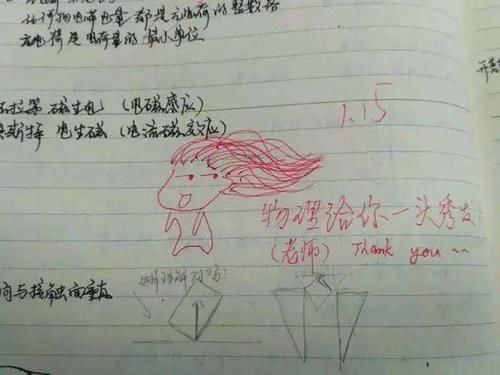 任何物体电荷量都是元电荷的整数倍
元电荷是电荷量的最小单位
法拉第 磁生电 (电磁感应)
奥斯特 电生磁 (电流磁效应)
1.15
物理给你一头秀发
(老师) Thank you ~~
向与接触面垂直